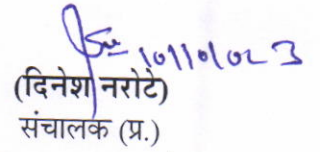 10/10/023
(दिनेश नरोटे)
संचालक (प्र.)